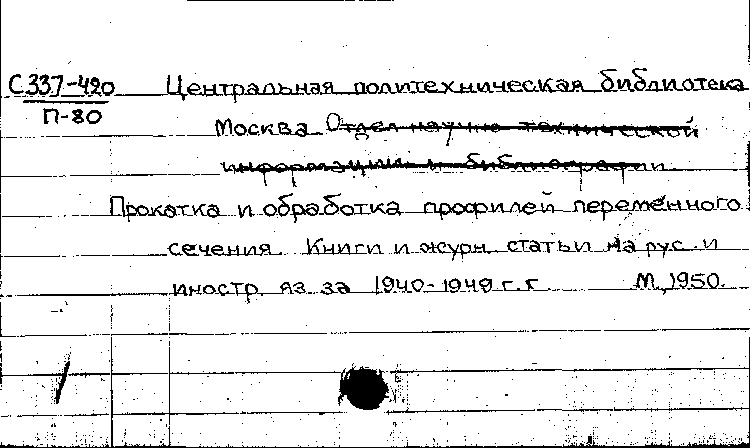 С337-420 Центральная политехническая библиотека
П-80
Москва Отдел научно технической
информации и библиографии
Прокатка и обработка профилей переменного
сечения. Книги и журн. статьи на рус. и
иностр. яз. за 1940-1949 г.г. М., 1950.